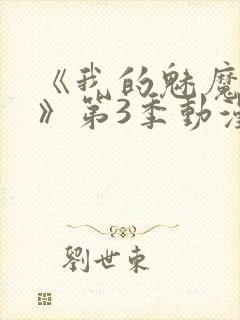 《我的魅魔
》第3季動漫
劉世東